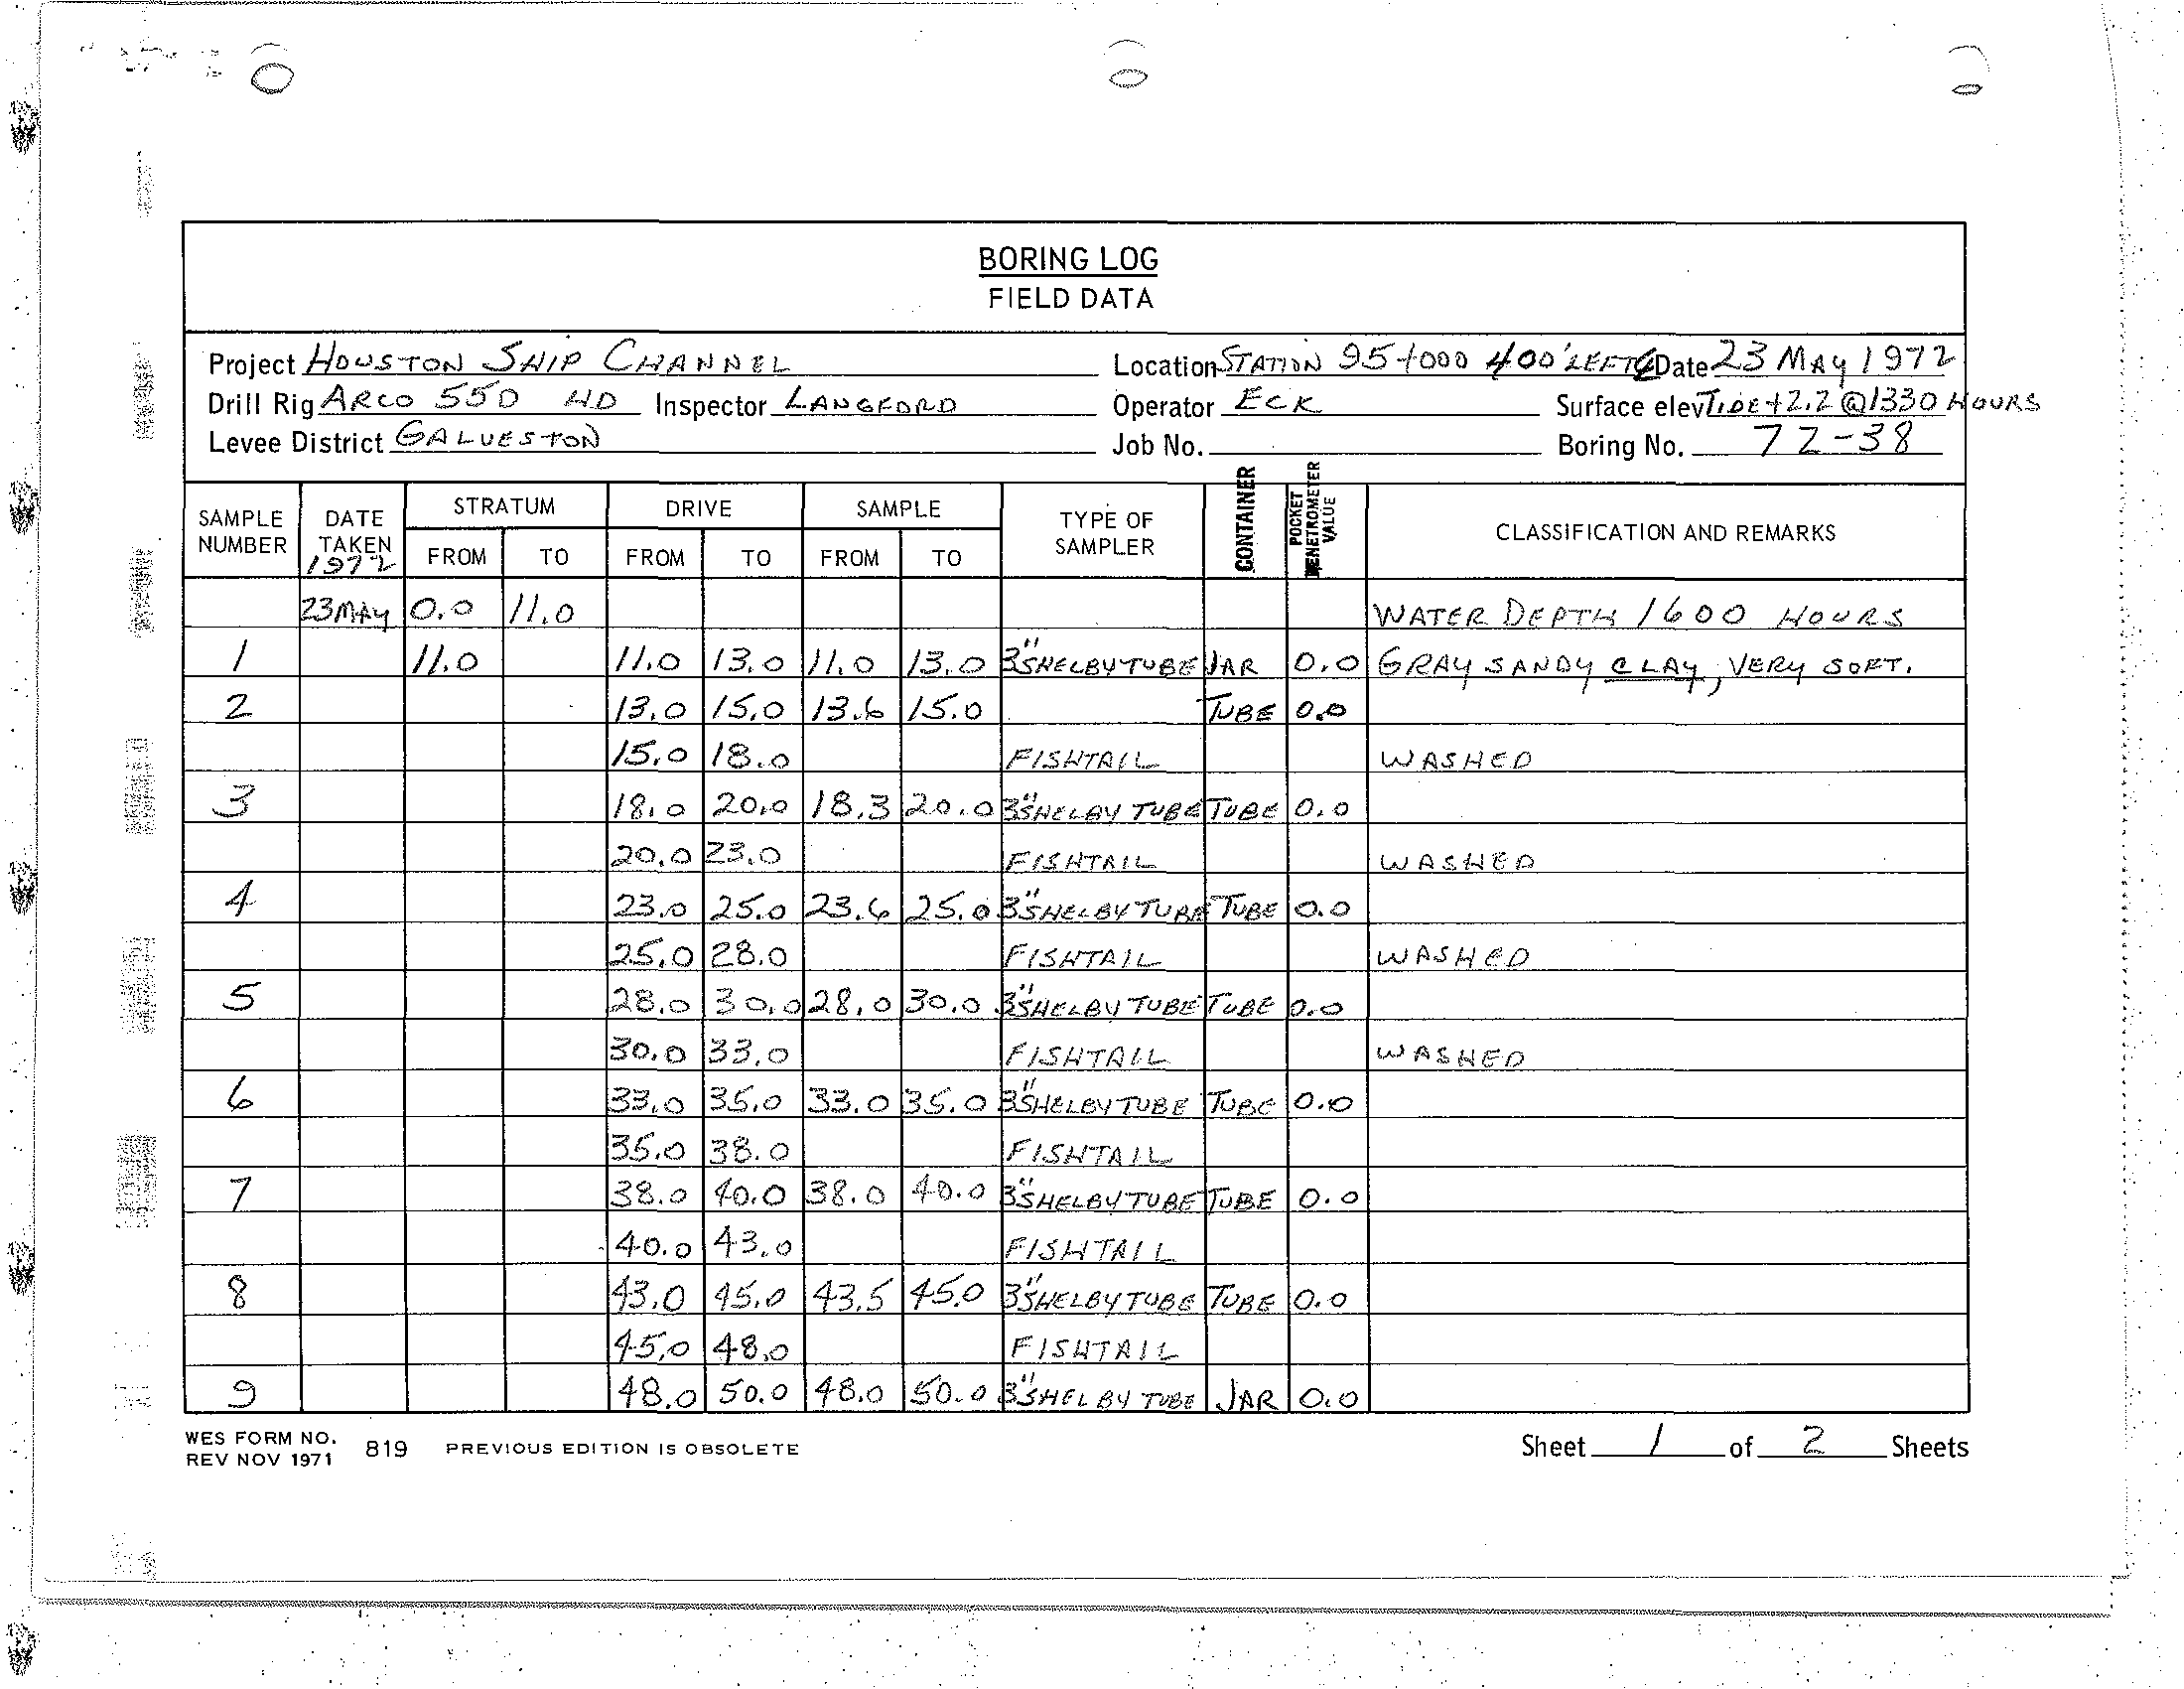 BORING LOG
FIELD DATA
Project HOUSTON SHIP CHANNEL Location STATION 95+000 400' LEFT ℄ Date 23 MAY 1972
Drill Rig ARCO 550 HD Inspector LANGFORD Operator ECK Surface elev TIDE +2.2 @ 1330 HOURS
Levee District GALVESTON Job No. Boring No. 72-38
SAMPLE NUMBER DATE TAKEN 1972 STRATUM DRIVE SAMPLE TYPE OF SAMPLER CONTAINER POCKET PENETROMETER VALUE CLASSIFICATION AND REMARKS
FROM TO FROM TO FROM TO
23 MAY 0.0 11.0 WATER DEPTH 1600 HOURS
1 11.0 11.0 13.0 11.0 13.0 3" SHELBY TUBE JAR 0.0 GRAY SANDY CLAY, VERY SOFT.
2 13.0 15.0 13.6 15.0 TUBE 0.0
15.0 18.0 FISHTAIL WASHED
3 18.0 20.0 18.3 20.0 3" SHELBY TUBE TUBE 0.0
20.0 23.0 FISHTAIL WASHED
4 23.0 25.0 23.6 25.0 3" SHELBY TUBE TUBE 0.0
25.0 28.0 FISHTAIL WASHED
5 28.0 30.0 28.0 30.0 3" SHELBY TUBE TUBE 0.0
30.0 33.0 FISHTAIL WASHED
6 33.0 35.0 33.0 35.0 3" SHELBY TUBE TUBE 0.0
35.0 38.0 FISHTAIL
7 38.0 40.0 38.0 40.0 3" SHELBY TUBE TUBE 0.0
40.0 43.0 FISHTAIL
8 43.0 45.0 43.5 45.0 3" SHELBY TUBE TUBE 0.0
45.0 48.0 FISHTAIL
9 48.0 50.0 48.0 50.0 3" SHELBY TUBE JAR 0.0
WES FORM NO. 819 PREVIOUS EDITION IS OBSOLETE Sheet 1 of 2 Sheets
REV NOV 1971